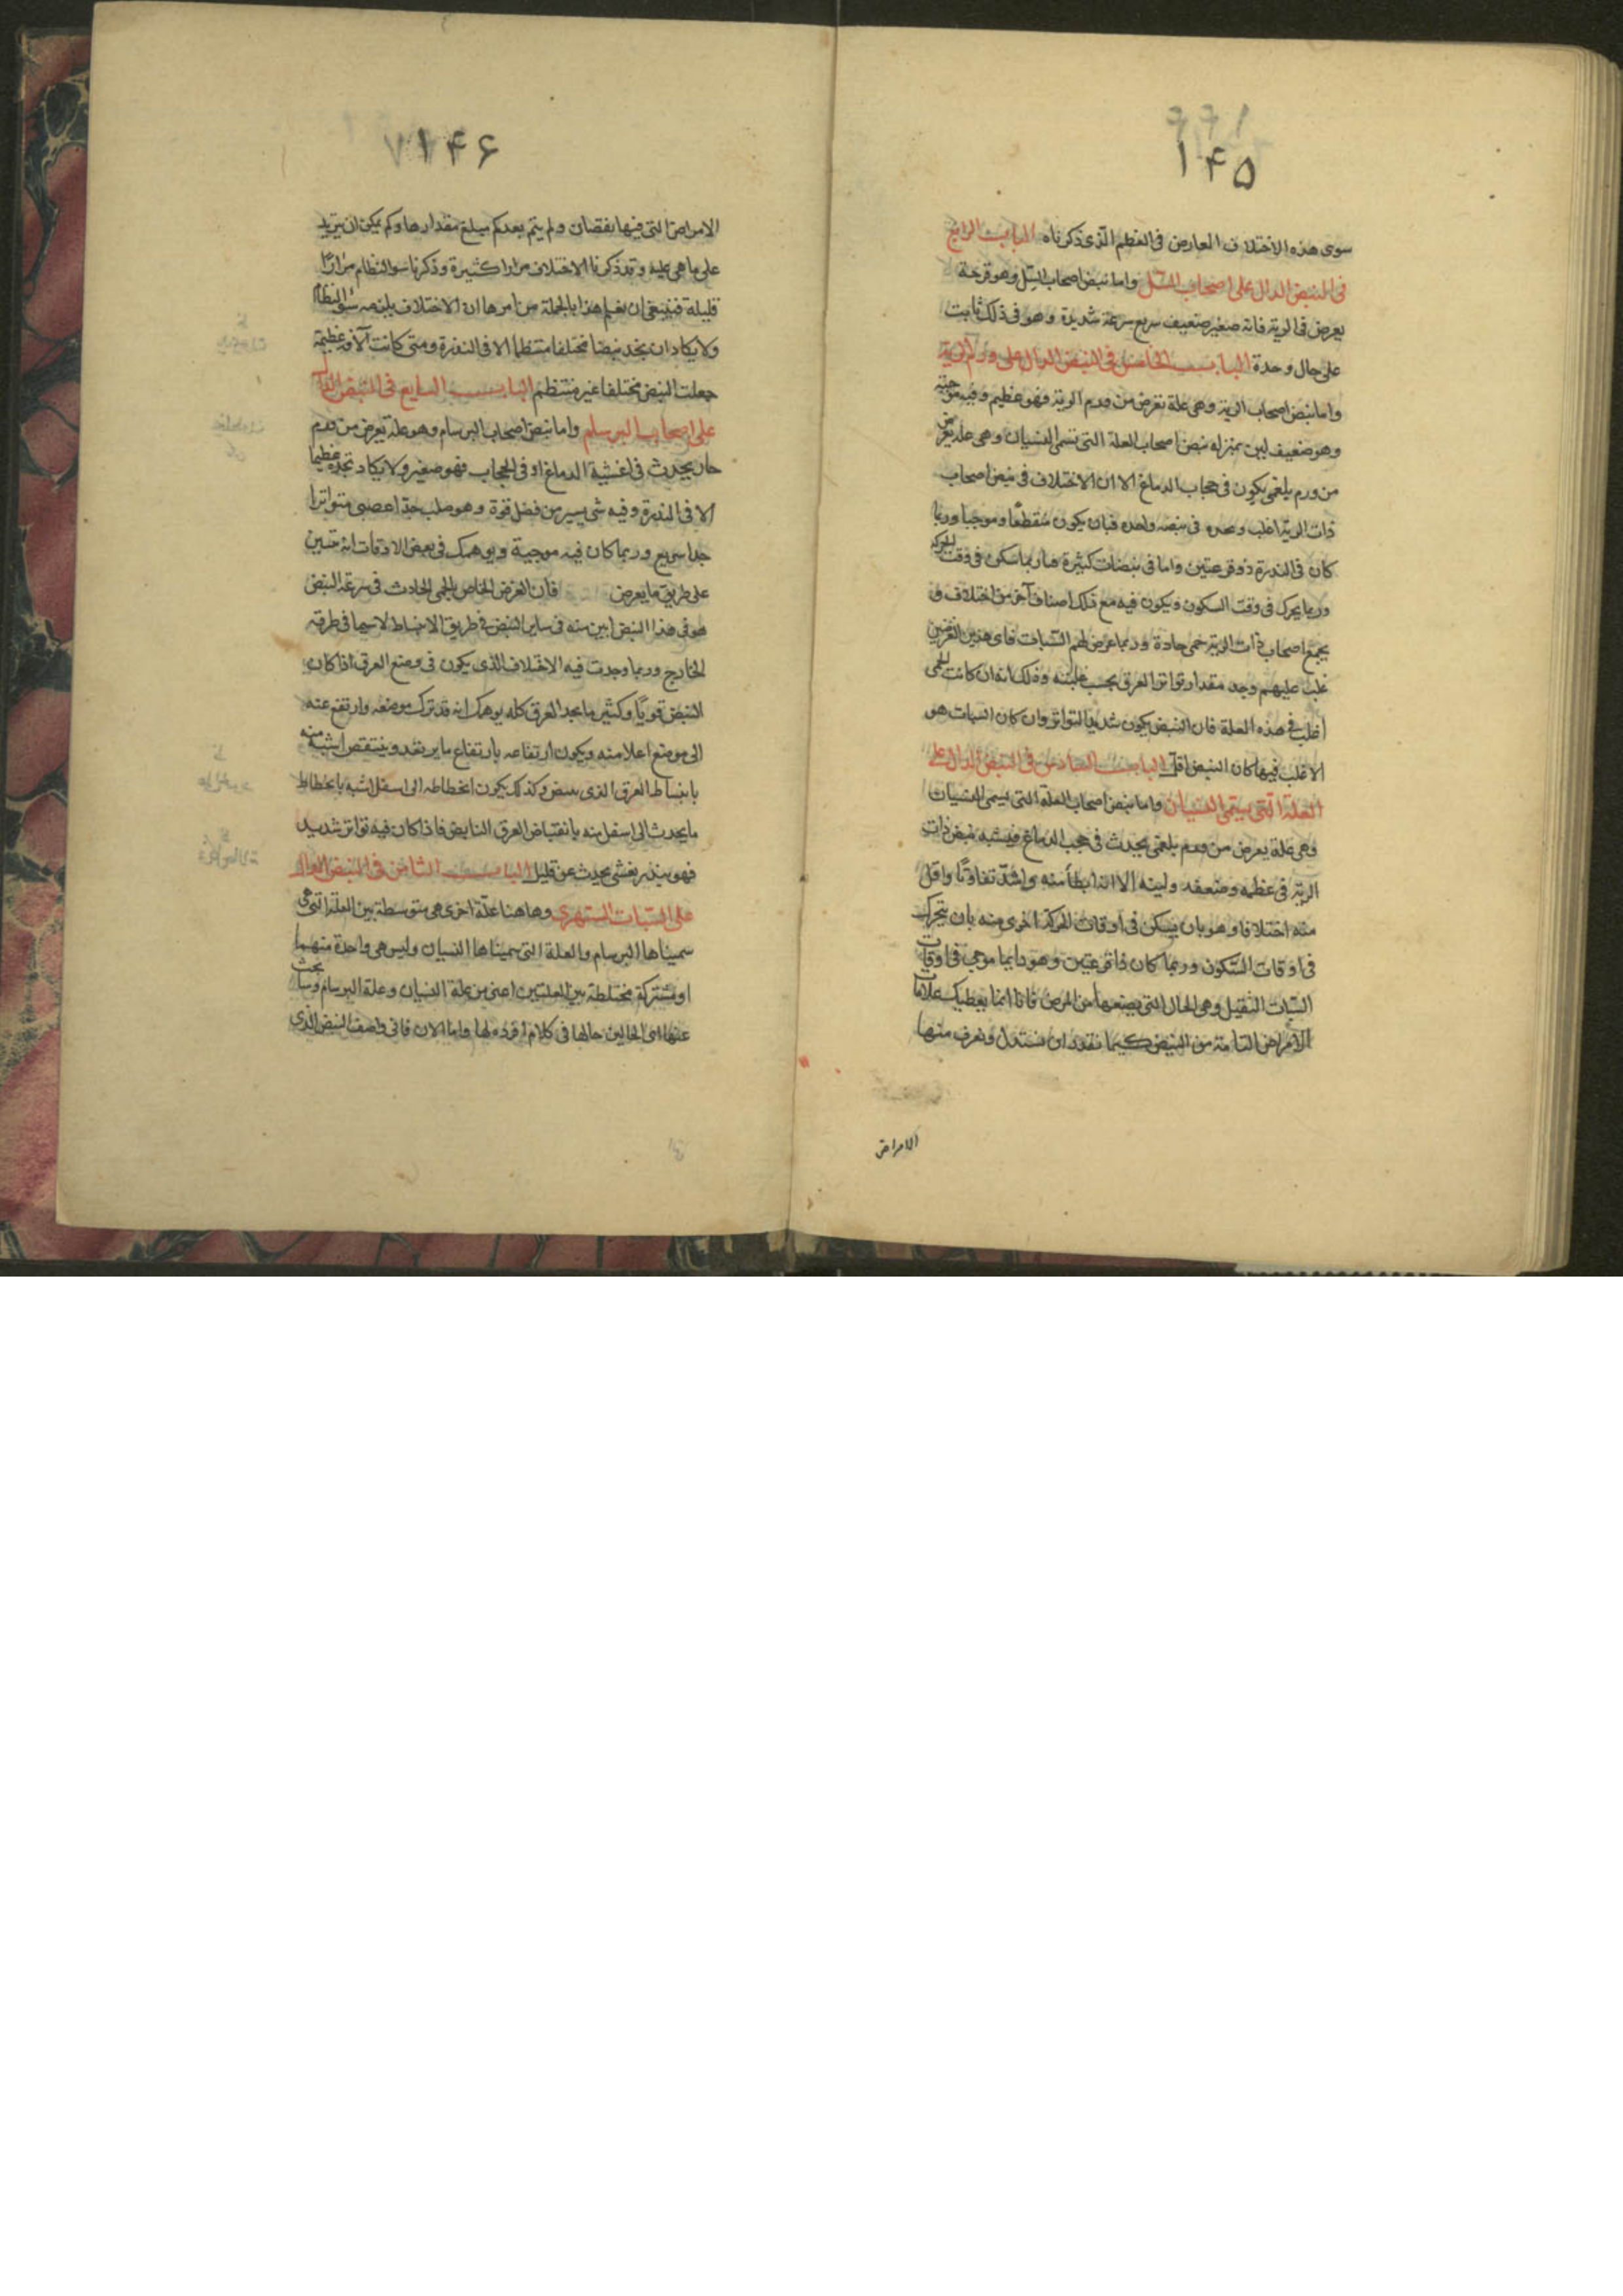 ١۴۵
سوى هذه الاختلاف العارض فى العظم الذى ذكرناه الباب الرابع
فى النبض الدال على اصحاب السل واما نبض اصحاب السل وهو قرحة
يعرض فى الرية فانه صغير ضعيف سريع سرعة شديدة وهو فى ذلك ثابت
على حال وحدة الباب الخامس فى النبض الدال على ورم الرية
واما نبض اصحاب الرية وهى علة تعرض من ورم الرية فهو عظيم وفيه موجية
وهو ضعيف لين بمنزله نبض اصحاب العلة التى تسمى النسيان وهى علة يعرض
من ورم بلغمى يكون فى حجاب الدماغ الا ان الاختلاف فى نبض اصحاب
ذات الرية اغلب وبحده فى نبضه واحده فبان يكون منقطعًا وموجيا وربما
كان فى الندرة ذو قرعتين واما فى نبضات كثيرة فبان ربما سكن فى وقت الحركة
وربما يحرك فى وقت السكون ويكون فيه مع ذلك اصناف آخر من اختلاف و
يجمع اصحاب ذات الرية حمى حادة وربما عرض لهم السبات فاى هذين العرضين
غلب عليهم وجد مقدار تواتر العرق بحسب غلبته وذلك انه ان كانت الحمى
اغلب فى هذه العلة فان النبض يكون شديد التواتر وان كان السبات هو
الاغلب فيها كان النبض اقل الباب السادس فى النبض الدال على
العلة التى يسمى النسيان واما نبض اصحاب العلة التى يسمى النسيان
وهى علة يعرض من ورم بلغمى يحدث فى حجب الدماغ فيشبه نبض ذات
الرية فى عظمه وضعفه ولينه الا انه ابطأ منه واشد تفاوتًا واقل
منه اختلافا وهو بان يسكن فى اوقات الحركة اخرى منه بان يتحرك
فى اوقات السكون وربما كان ذا قرعتين وهو دايما موجى فى اوقات
السبات الثقيل وهى الحال التى يصنعها من المرض فانا انما يعطيك علامات
الامراض التامة من النبض كيما نقدر ان نستدل ونعرف منها
الامراض
١۴۶
الامراض التى فيها نقصان ولم يتم بعد كم مبلغ مقدارها وكم يمكن ان يتزيد
على ما هى عليه وقد ذكرنا الاختلاف مرارا كثيرة وذكرنا سو النظام مرارًا
قليلة فينبغى ان نعلم هذا بالجملة من امرها ان الاختلاف يلزمه سؤ النظام
ولا يكاد ان يجد نبضا مختلفا منتظما الا فى الندرة ومتى كانت الآفة عظيمة
جعلت النبض مختلفا غير منتظم الباب السابع فى النبض الدال
على اصحاب البرسام واما نبض اصحاب البرسام وهو علة تعرض من ورم
حار يحدث فى اغشية الدماغ او فى الحجاب فهو صغير ولا يكاد تجده عظيما
الا فى الندرة وفيه شى يسير من فضل قوة وهو صلب جدا عصبى متواترا
جدا سريع وربما كان فيه موجية ويوهمك فى بعض الاوقات انه
على طريق ما يعرض فان العرض الخاص بالحمى الحادث فى سرعة النبض
هو فى هذا النبض ابين منه فى ساير النبض فى طريق الانبساط لا سيما فى طرفه
الخارج وربما وجدت فيه الاختلاف الذى يكون فى وضع العرق اذا كان
النبض قويًا وكثير ما يجد العرق كله يوهمك انه قد ترك موضعه وارتفع عنه
الى موضع اعلا منه ويكون ارتفاعه بارتفاع ما يرتفع وينتقص اشبه منه
بانبساط العرق الذى ينبض وكذلك يكون انحطاطه الى اسفل اشبه بانحطاط
ما يحدث الى اسفل منه بانقباض العرق النابض فاذا كان فيه تواتر شديد
فهو ينذر بغشى يحدث عن قليل الباب الثامن فى النبض الدال
على السبات السهرى وهاهنا علة اخرى هى متوسطة بين العلة التى
سميناها البرسام والعلة التى سميناها النسيان وليس هى واحدة منهما
او مشتركة مختلطة بين العلتين اعنى من علة النسيان وعلة البرسام وسابحث
عنها اى الحالين حالها فى كلام افرده لها واما الان فانى واصف النبض الذى